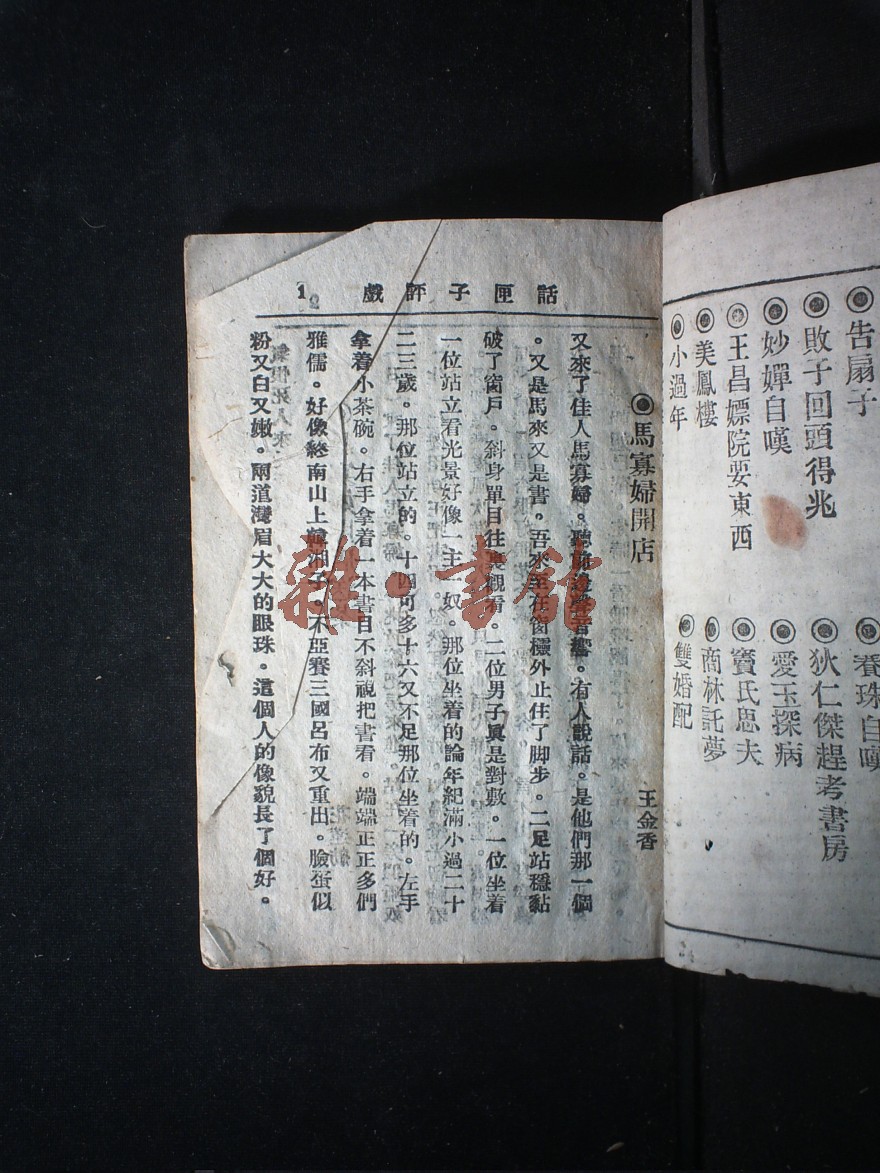 告扇子
敗子回頭得兆
妙嬋自嘆
王昌嫖院要東西
美鳳樓
小過年
養珠自嘆
狄仁傑趕考書房
愛玉探病
竇氏思夫
商林託夢
雙婚配
話匣子評戲
1
馬寡婦開店
王金香
又來了佳人馬寡婦。聽聲音響。有人說話。是他們那一個
。又是馬來又是書。吾來至在窗櫺外止住了脚步。二足站穩黏
破了窗戶。斜身單目往裏觀看。二位男子眞是對敷。一位坐着
一位站立看光景好像一主一奴。那位坐着的論年紀滿小過二十
二三歲。那位站立的。十四可多十六又不足那位坐着的。左手
拿着小茶碗。右手拿着一本書目不斜視把書看。端端正正多們
雅儒。好像終南山上韓湘子。不亞賽三國呂布又重出。臉蛋似
粉又白又嫩。兩道灣眉大大的眼珠。這個人的像貌長了個好。
雜·書館